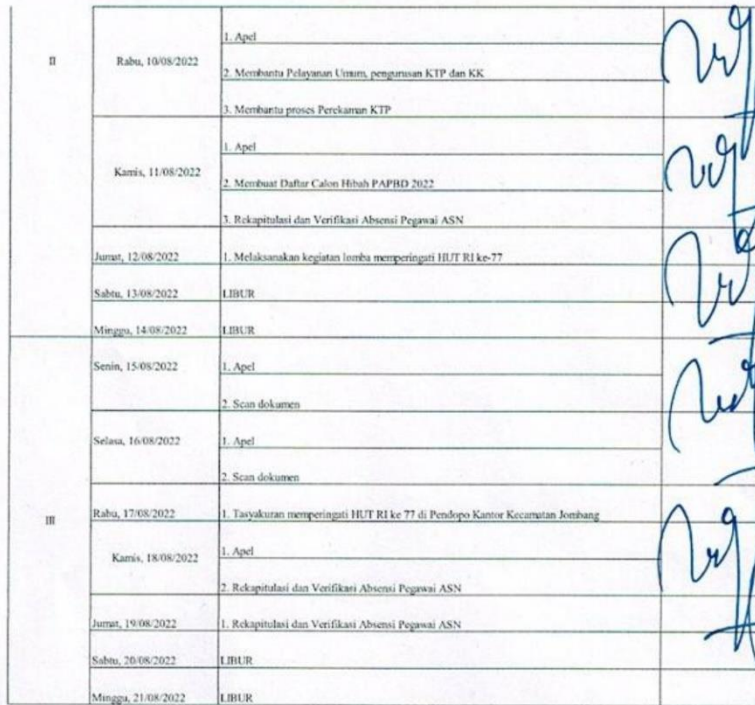 II
Rabu, 10/08/2022
1. Apel
2. Membantu Pelayanan Umum, pengurusan KTP dan KK
3. Membantu proses Perekaman KTP
Kamis, 11/08/2022
1. Apel
2. Membuat Daftar Calon Hibah PAPBD 2022
3. Rekapitulasi dan Verifikasi Absensi Pegawai ASN
Jumat, 12/08/2022
1. Melaksanakan kegiatan lomba memperingati HUT RI ke-77
Sabtu, 13/08/2022
LIBUR
Minggu, 14/08/2022
LIBUR
III
Senin, 15/08/2022
1. Apel
2. Scan dokumen
Selasa, 16/08/2022
1. Apel
2. Scan dokumen
Rabu, 17/08/2022
1. Tasyakuran memperingati HUT RI ke 77 di Pendopo Kantor Kecamatan Jombang
Kamis, 18/08/2022
1. Apel
2. Rekapitulasi dan Verifikasi Absensi Pegawai ASN
Jumat, 19/08/2022
1. Rekapitulasi dan Verifikasi Absensi Pegawai ASN
Sabtu, 20/08/2022
LIBUR
Minggu, 21/08/2022
LIBUR